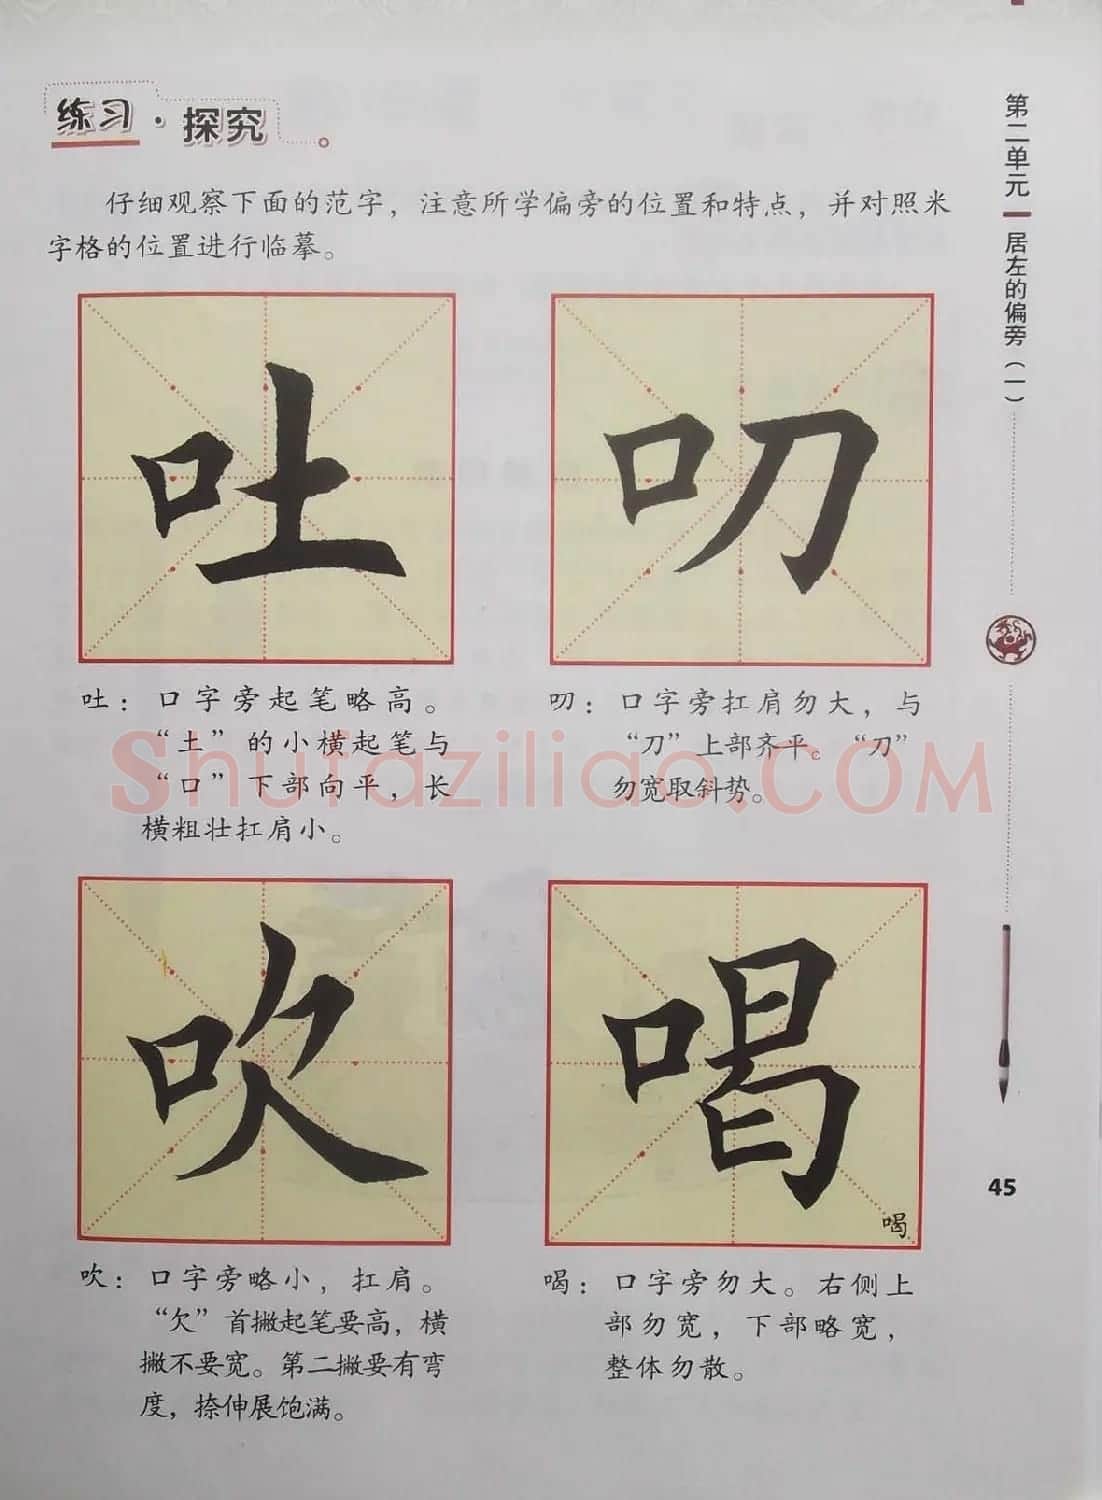 练习·探究
仔细观察下面的范字，注意所学偏旁的位置和特点，并对照米
字格的位置进行临摹。
吐
叨
吐：口字旁起笔略高。
“土”的小横起笔与
“口”下部向平，长
横粗壮扛肩小。
叨：口字旁扛肩勿大，与
“刀”上部齐平。“刀”
勿宽取斜势。
吹
喝
喝
吹：口字旁略小，扛肩。
“欠”首撇起笔要高，横
撇不要宽。第二撇要有弯
度，捺伸展饱满。
喝：口字旁勿大。右侧上
部勿宽，下部略宽，
整体勿散。
第二单元 居左的偏旁（一）
45
Shufaziliao.COM